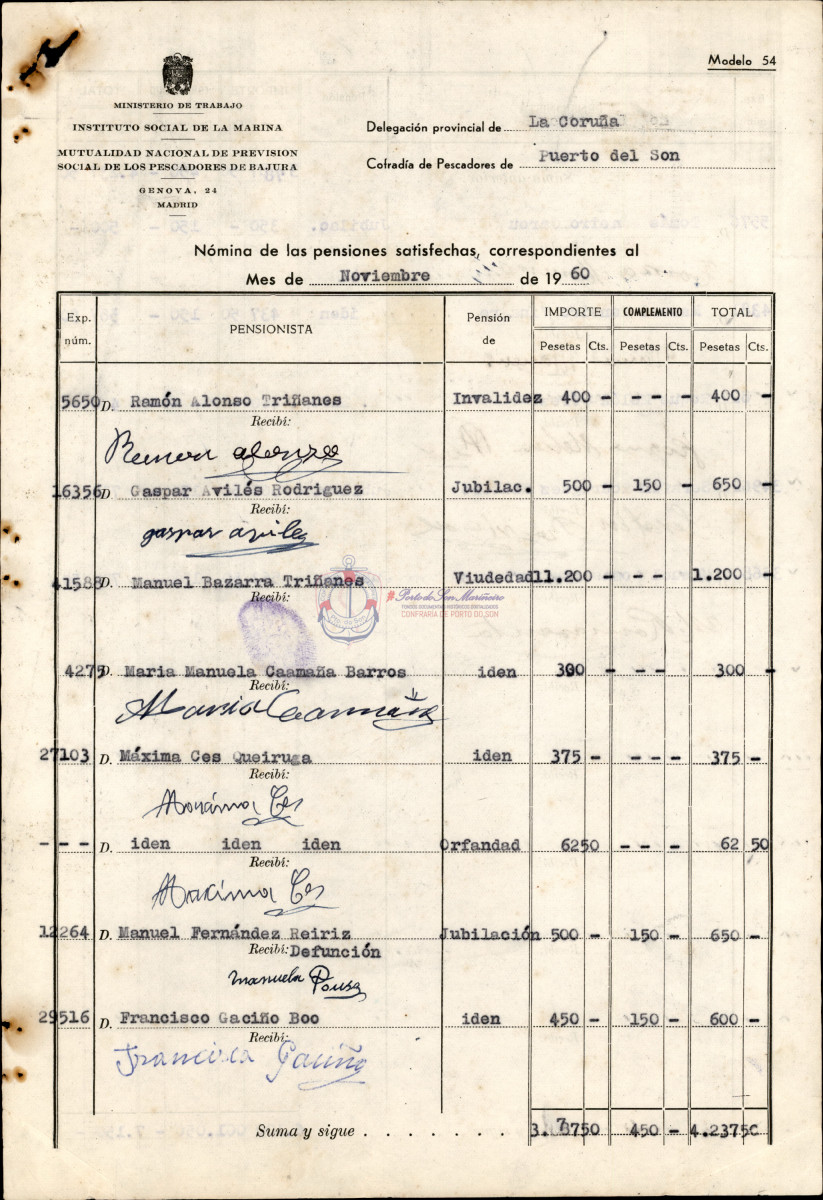 Modelo 54
MINISTERIO DE TRABAJO
INSTITUTO SOCIAL DE LA MARINA
MUTUALIDAD NACIONAL DE PREVISION
SOCIAL DE LOS PESCADORES DE BAJURA
GENOVA, 24
MADRID
Delegación provincial de La Coruña
Cofradía de Pescadores de Puerto del Son
Nómina de las pensiones satisfechas, correspondientes al
Mes de Noviembre de 1960
Exp. núm. PENSIONISTA Pensión de IMPORTE COMPLEMENTO TOTAL
Pesetas Cts. Pesetas Cts. Pesetas Cts.
5650 D. Ramón Alonso Triñanes Invalidez 400 - - - - - 400 -
Recibí:
Ramon Alonso
16356 D Gaspar Avilés Rodriguez Jubilac. 500 - 150 - 650 -
Recibí:
gaspar avile
41588 D. Manuel Bazarra Triñanes Viudedad 11.200 - - - - - 1.200 -
Recibí:
#Porto do Son Mariñeiro
FONDOS DOCUMENTAIS HISTÓRICOS DIXITALIZADOS
CONFRARIA DE PORTO DO SON
4275 D. Maria Manuela Caamaña Barros iden 300 - - - - - 300 -
Recibí:
Maria Caamaña
27103 D. Máxima Ces Queiruga iden 375 - - - - - 375 -
Recibí:
Maxima Ces
- - - D. iden iden iden Orfandad 62 50 - - - - 62 50
Recibí:
Maxima Ces
12264 D. Manuel Fernández Reiriz Jubilación 500 - 150 - 650 -
Recibí: Defunción
manuela Pousa
29516 D. Francisco Gaciño Boo iden 450 - 150 - 600 -
Recibí:
Francisca Gaciño
Suma y sigue . . . . . . . 3.787 50 450 - 4.237 50